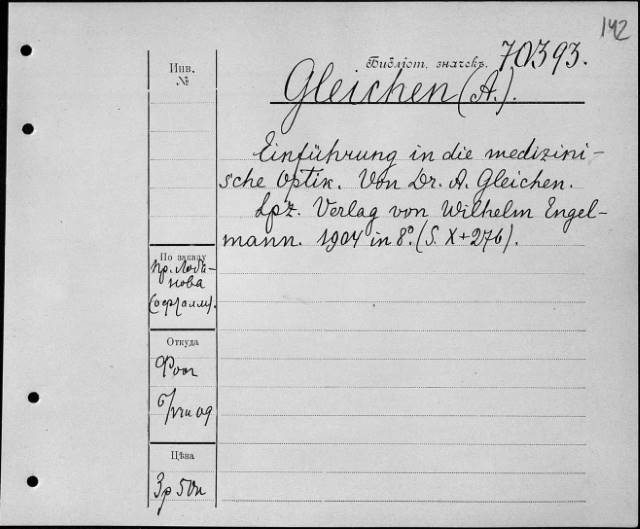 142
Библіот. значекъ. 70393.
Gleichen (A.).
Einführung in die medizini-
sche Optik. Von Dr. A. Gleichen.
Lpz. Verlag von Wilhelm Engel-
mann. 1904 in 8º. (S. X+276).
Инв.
№
По заказу
пр. Лоба-
нова
(офталм).
Откуда
6/VIII 09
Цѣна
3р 50к